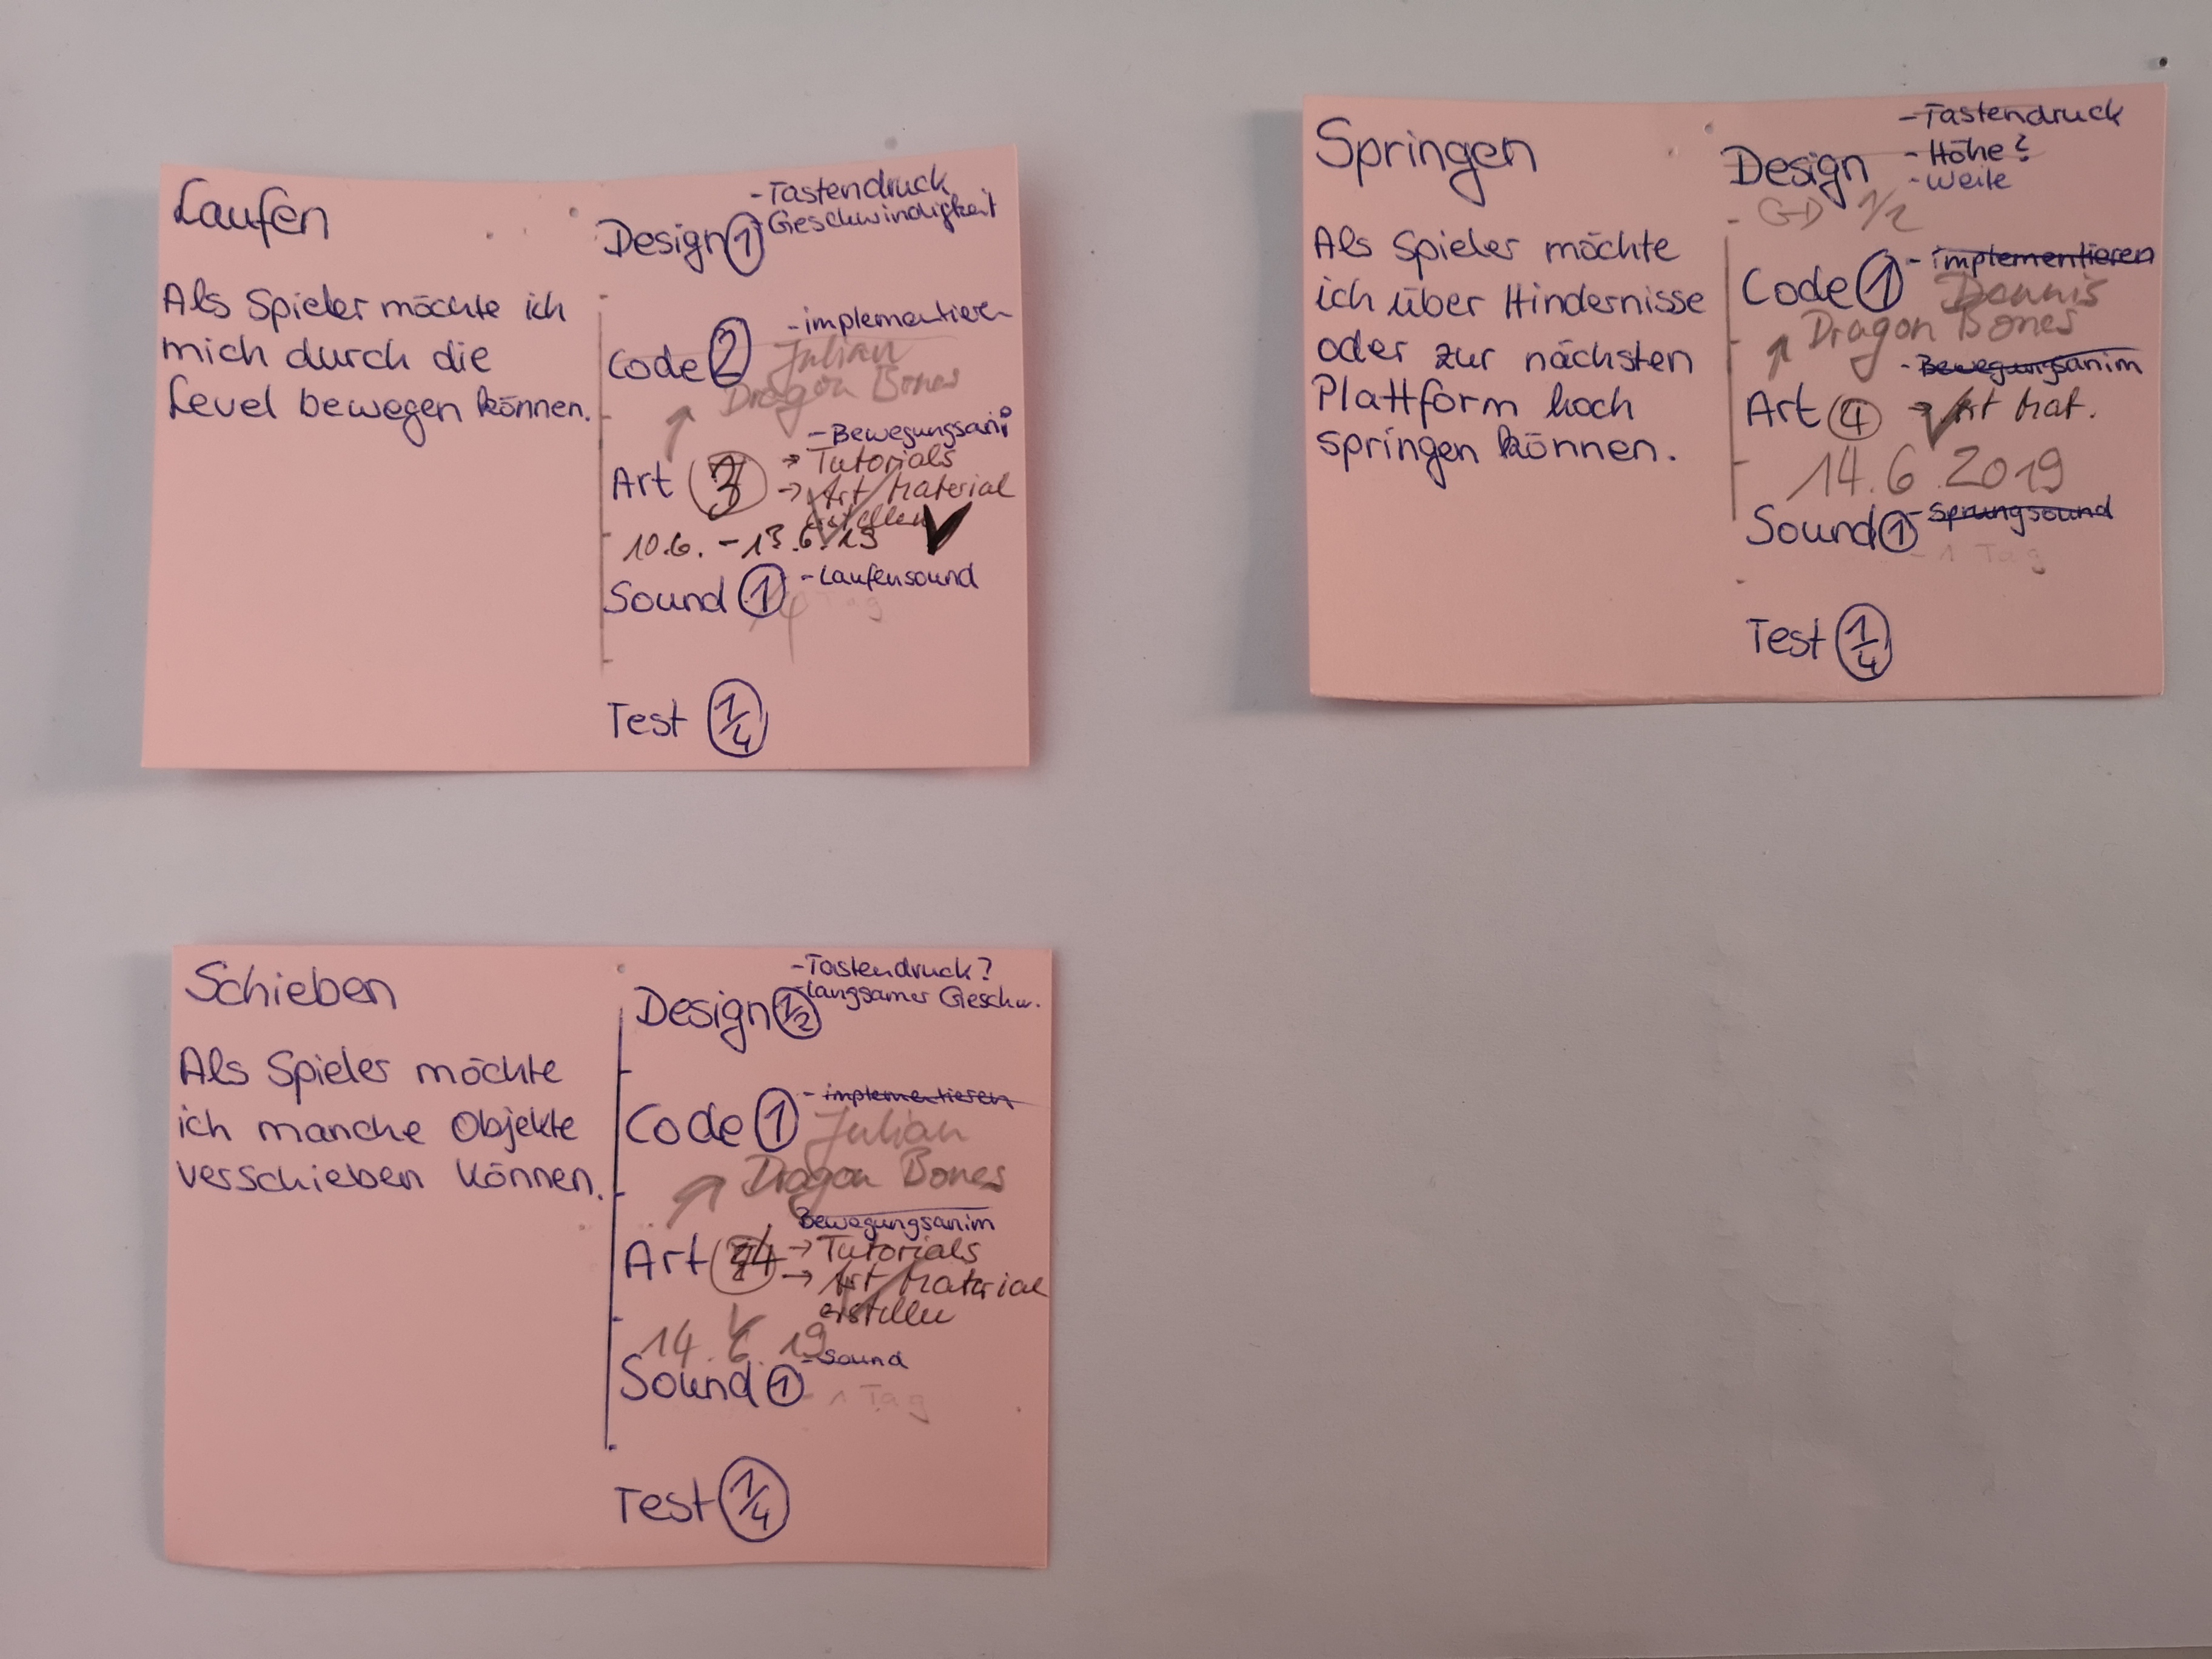 Laufen
Als Spieler möchte ich
mich durch die
Level bewegen können.
Design 1
- Tastendruck
Geschwindigkeit
Code 2
- implementieren
Julian
Dragon Bones
Art
- Bewegungsani
→ Tutorials
→ Art Material
erstellen
10.6. - 13.6.19
Sound 1
- Laufensound
Tag
Test 1/4
Springen
Als Spieler möchte
ich über Hindernisse
oder zur nächsten
Plattform hoch
springen können.
Design
- Tastendruck
- Höhe?
- Weite
GD 1/2
Code 1
- implementieren
Dennis
Dragon Bones
- Bewegungsanim
Art 4 → Art Mat.
14.6.2019
Sound 1
- Sprungsound
- 1 Tag
Test 1/4
Schieben
Als Spieler möchte
ich manche Objekte
verschieben können.
Design 1/2
- Tastendruck?
- langsamer Geschw.
Code 1
- implementieren
Julian
Dragon Bones
Bewegungsanim
Art
→ Tutorials
→ Art Material
erstellen
14.6.19
Sound 1
- Sound
- 1 Tag
Test 1/4